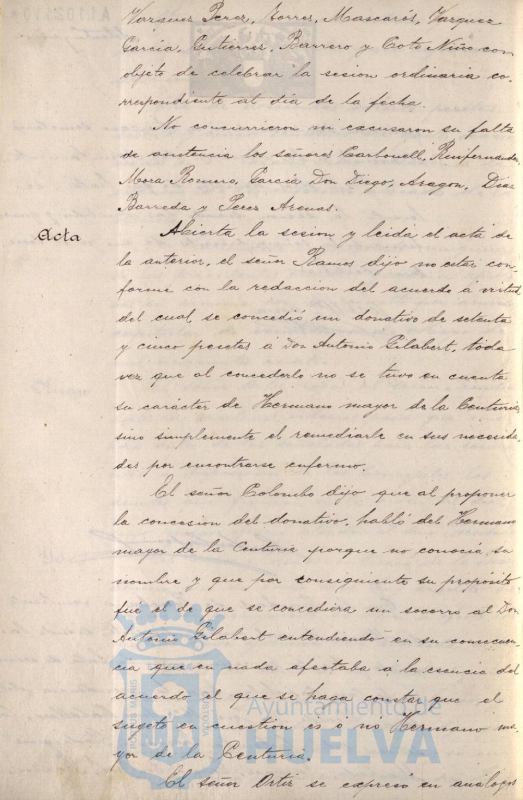 Vazquez Perez, Torres, Mascarós, Vazquez
García, Gutierrez, Barrero y Coto Niño con
objeto de celebrar la sesion ordinaria co-
rrespondiente al dia de la fecha.
No concurrieron ni excusaron su falta
de asistencia los señores Carbonell, Ruifernandez,
Mora Romero, García Don Diego, Aragon, Diaz
Barreda y Perez Arenas.
Acta
Abierta la sesion y leida el acta de
la anterior, el señor Ramos dijo no estar con-
forme con la redaccion del acuerdo á virtud
del cual, se concedió un donativo de setenta
y cinco pesetas á Don Antonio Gilabert, toda
vez que al concederlo no se tuvo en cuenta
su carácter de Hermano mayor de la Centuria
sino simplemente el remediarle en sus necesida-
des por encontrarse enfermo.
El señor Colombo dijo que al proponer
la concesion del donativo, habló del Hermano
mayor de la Centuria porque no conocía su
nombre y que por consiguiente su propósito
fué el de que se concediera un socorro al Don
Antonio Gilabert entendiendo en su consecuen-
cia que en nada afectaba á la esencia del
acuerdo el que se haga constar que el
sugeto en cuestion es ó no Hermano ma-
yor de la Centuria.
El señor Ortiz se expresó en análogos
Ayuntamiento de
HUELVA